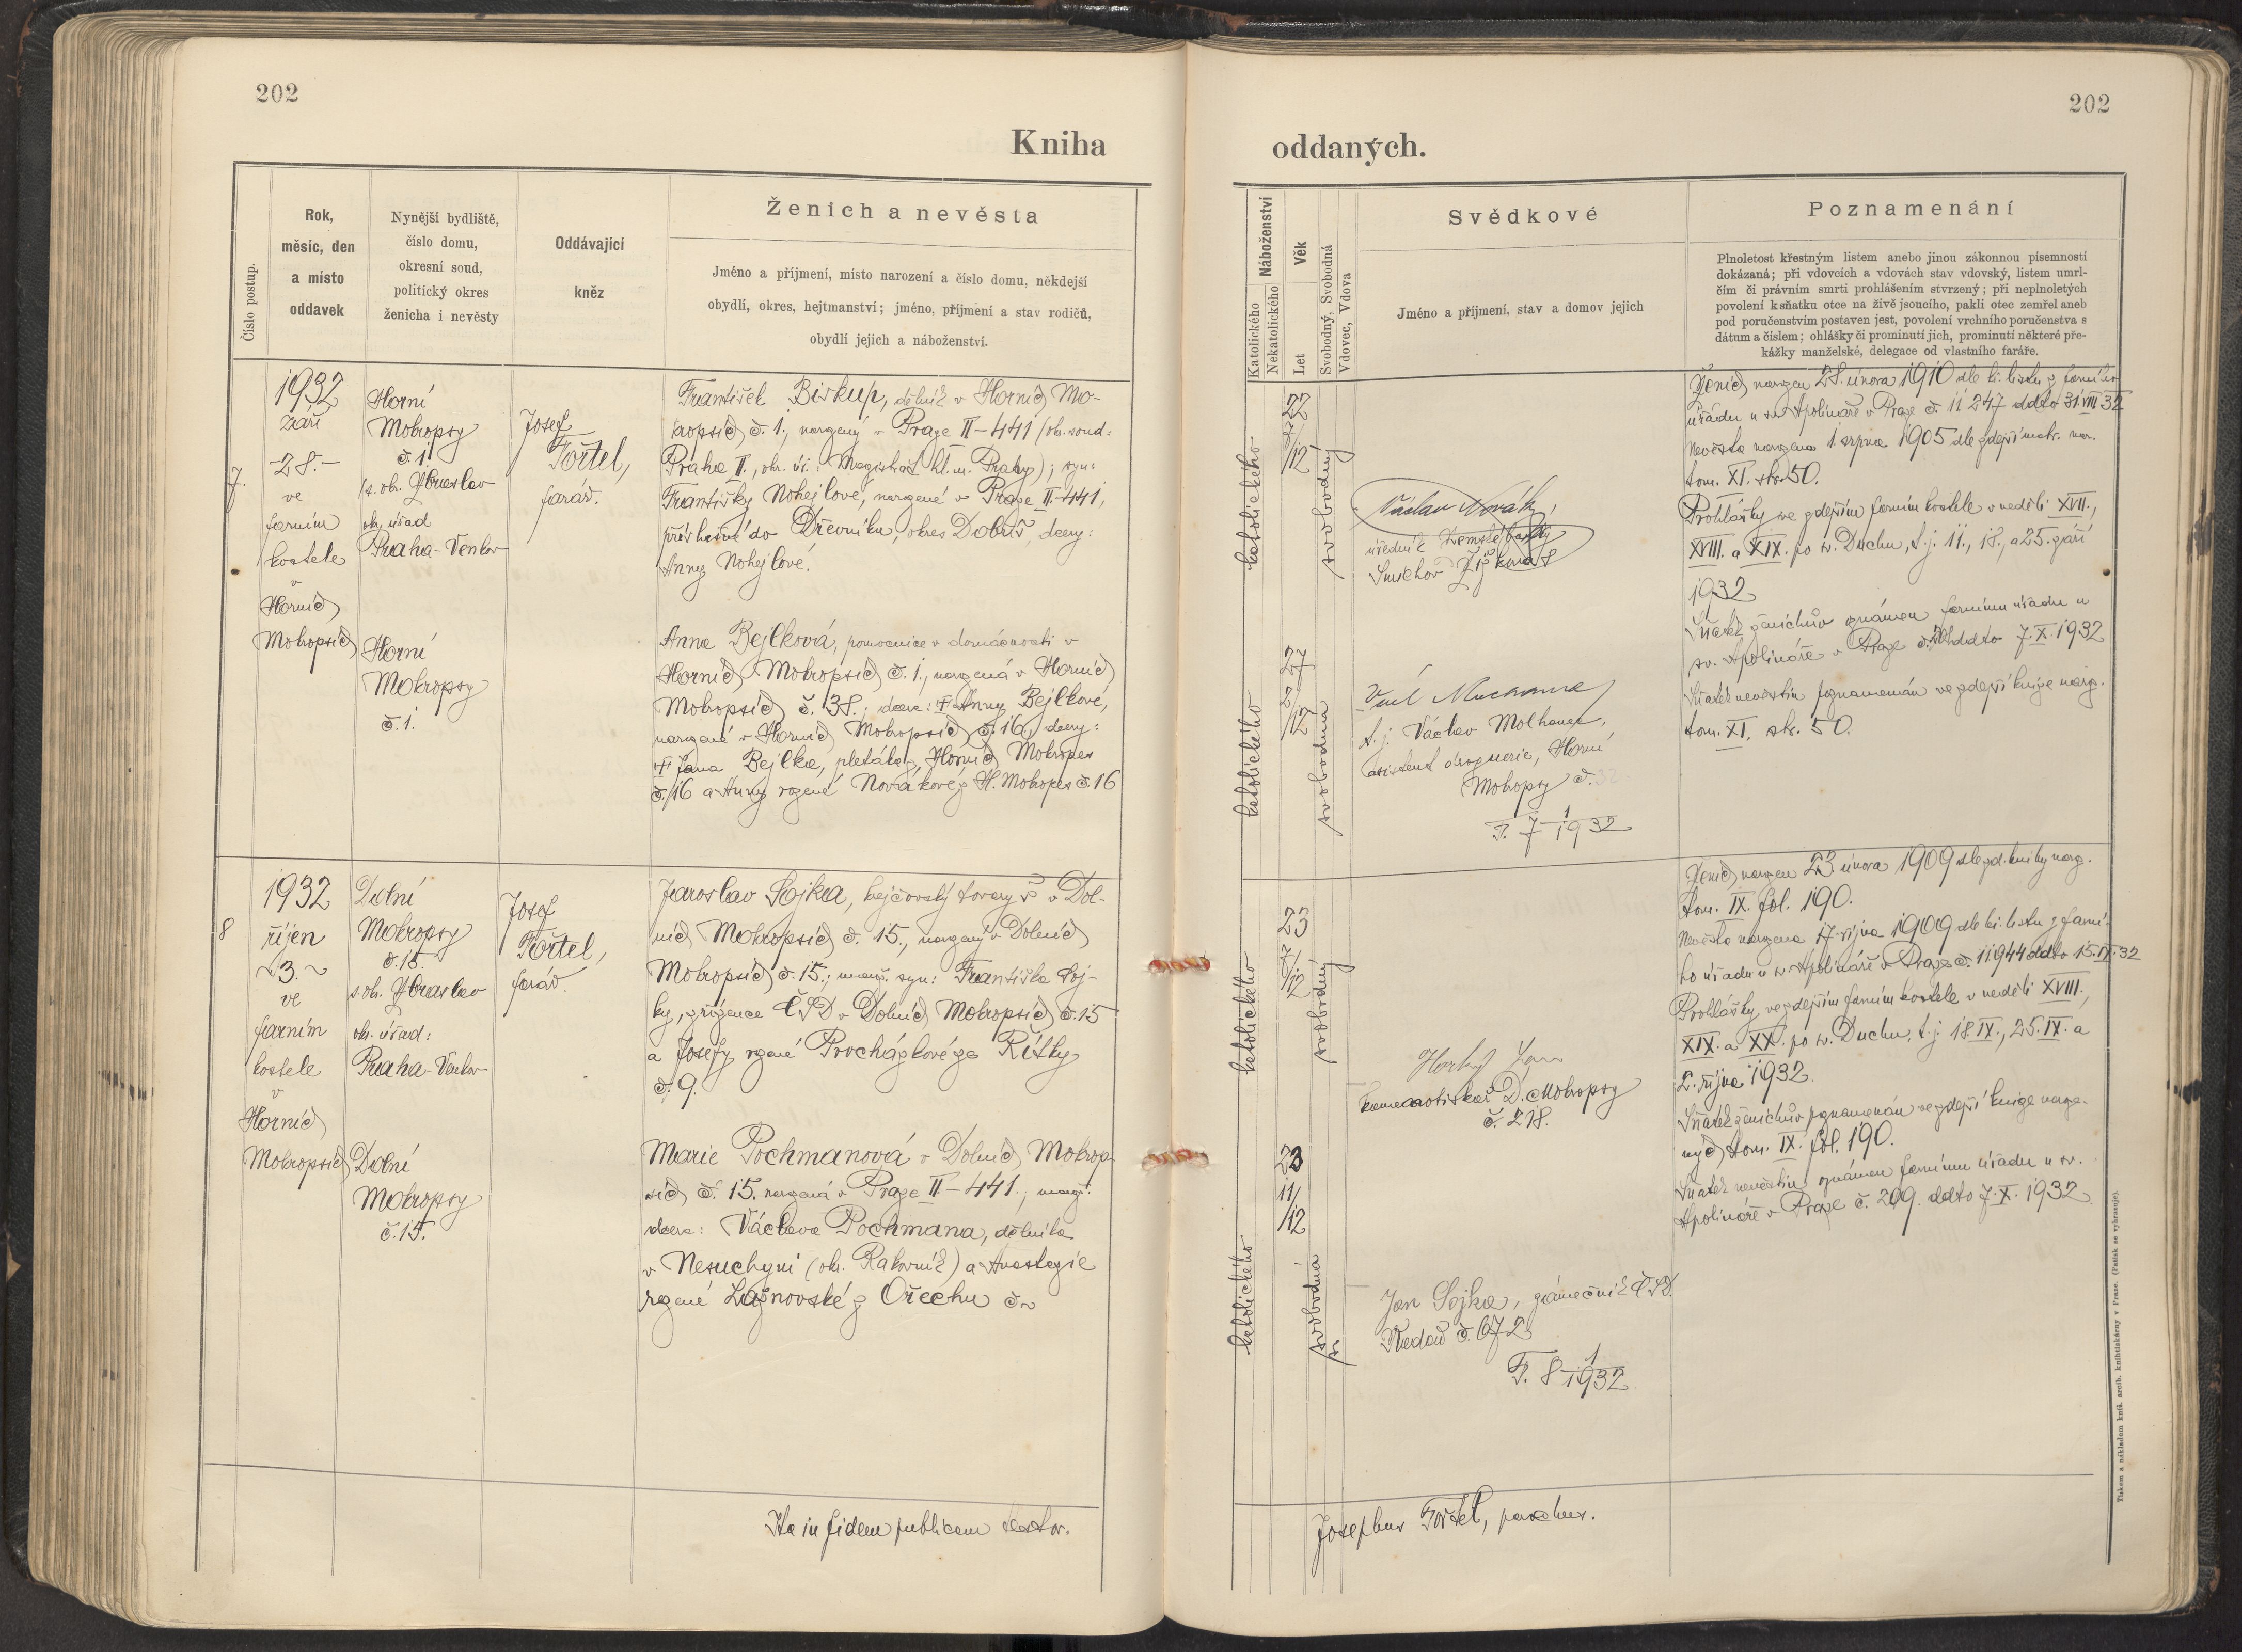 202
202
Kniha
oddaných.
Číslo postup.
Rok,
měsíc, den
a místo
oddavek
Nynější bydliště,
číslo domu,
okresní soud,
politický okres
ženicha i nevěsty
Oddávající
kněz
Ženich a nevěsta
Jméno a příjmení, místo narození a číslo domu, někdejší
obydlí, okres, hejtmanství; jméno, příjmení a stav rodičů,
obydlí jejich a náboženství.
7.
1932
září
-28.-
ve
farním
kostele
v
Horních
Mokropsích
Horní
Mokropsy
č.1.
s. okr. Zbraslav
okr. úřad
Praha-Venkov
Horní
Mokropsy
č.1.
Josef
Fořtel,
farář.
František Biskup, dělník v Horních Mo-
kropsích č. 1., narozený v Praze II-441 (okr. soud:
Praha II., okr. úř.: Magistrát hl. m. Prahy); syn:
Františky Nohejlové, narozené v Praze II-441,
příslušné do Dřevníku, okres Dobříš, dcery:
Anny Nohejlové.
Anna Bejlková, pomocnice v domácnosti v
Horních Mokropsích č. 1., narozená v Horních
Mokropsích č. 38.; dcera: Anny Bejlkové,
narozené v Horních Mokropsích č. 16, dcery:
Jana Bejlka, z Horních Mokropes
č. 16 a Anny rozené Novákové z H. Mokropes č. 16
8
1932
říjen
~3.~
ve
farním
kostele
v
Horních
Mokropsích
Dolní
Mokropsy
č. 15.
s. okr. Zbraslav
okr. úřad:
Praha-Venkov
Dolní
Mokropsy
č. 15.
Josef
Fořtel,
farář.
Jaroslav Sojka, krejčovský tovaryš v Dol-
ních Mokropsích č. 15., narozený v Dolních
Mokropsích č. 15.; manž. syn: Františka Soj-
ky, zřízence ČSD v Dolních Mokropsích č. 15
a Josefy rozené Procházkové ze Řitky
č. 9.
Marie Pochmanová v Dolních Mokrop-
sích č. 15. narozená v Praze II-441.; manž.
dcera: Václava Pochmana, dělníka
v Nesuchyni (okr. Rakovník) a Anastazie
rozené z Ořechu č.
Ita in fidem publicam testor.
Náboženství
Katolického
Nekatolického
Věk
Let
Svobodný, Svobodná
Vdovec, Vdova
Svědkové
Jméno a příjmení, stav a domov jejich
Poznamenání
Plnoletost křestným listem anebo jinou zákonnou písemností
dokázaná; při vdovcích a vdovách stav vdovský, listem umrl-
čím či právním smrti prohlášením stvrzený; při neplnoletých
povolení k sňatku otce na živě jsoucího, pakli otec zemřel aneb
pod poručenstvím postaven jest, povolení vrchního poručenstva s
dátum a číslem; ohlášky či prominutí jich, prominutí některé pře-
kážky manželské, delegace od vlastního faráře.
katolického
22
7/12
svobodný
Václav Novák,
úředník Zemské banky
Smíchov
katolického
27
2/12
svobodná
t. j. Václav Molhanec,
asistent drogerie, Horní
Mokropsy č. 32
F. 7 1/1932
Ženich narozen 28. února 1910 dle kř. listu z farního
úřadu u sv. Apolináře v Praze č. 11247 ddto 31.VIII.32
Nevěsta narozena 1. srpna 1905 dle zdejší matr. nar.
tom. XI. str. 50.
Prohlášky ve zdejším farním kostele v neděli XVII.,
XVIII. a XIX. po sv. Duchu, t. j. 11., 18., a 25. září
1932
Sňatek ženichův oznámen farnímu úřadu u
sv. Apolináře v Praze ddto 7.X.1932
Sňatek nevěstin poznamenán ve zdejší knize naroz.
tom. XI. str. 50.
katolického
23
7/12
svobodný
Horký Jan
kamenotiskař D. Mokropsy
č. 218.
katolického
23
11/12
svobodná
Jan Sojka, zámečník ČSD.
č. 672
F. 8 1/1932
Ženich narozen 23. února 1909 dle zd. knihy naroz.
tom. IX. fol. 190.
Nevěsta narozena 17. října 1909 dle kř. listu z farní-
ho úřadu u sv. Apolináře v Praze č. 11944 ddto 15.IX.32
Prohlášky ve zdejším farním kostele v neděli XVIII.,
XIX. a XX. po sv. Duchu, t. j. 18.IX., 25.IX. a
2. října 1932.
Sňatek ženichův poznamenán ve zdejší knize naroze-
ných tom. IX. fol. 190.
Sňatek nevěstin oznámen farnímu úřadu u sv.
Apolináře v Praze č. 209. ddto 7.X.1932
Josephus Fořtel, parochus.
Tiskem a nákladem kníž. arcib. knihtiskárny v Praze. (Patisk se vyhrazuje).